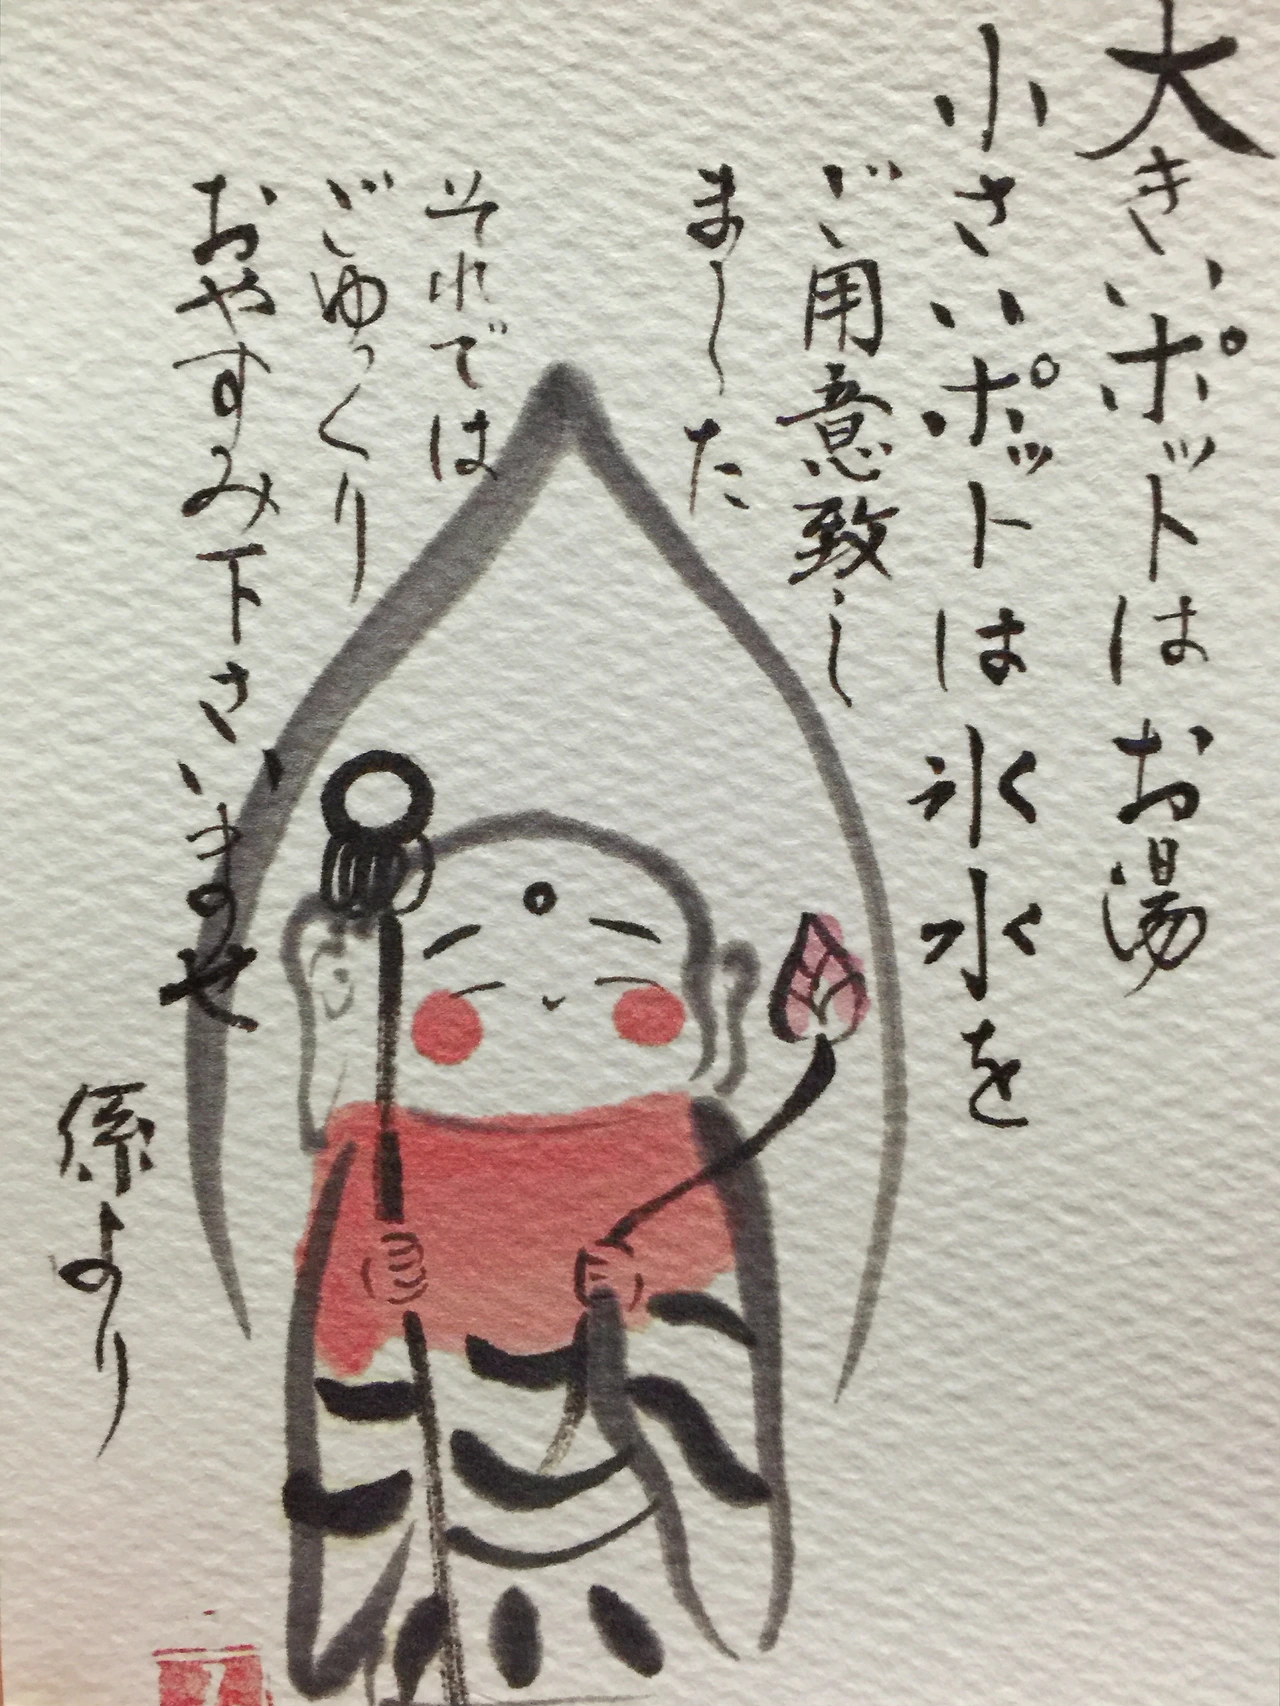 大きいポットはお湯
小さいポットは氷水を
ご用意致し
ました
それでは
ごゆっくり
おやすみ下さいませ
係より